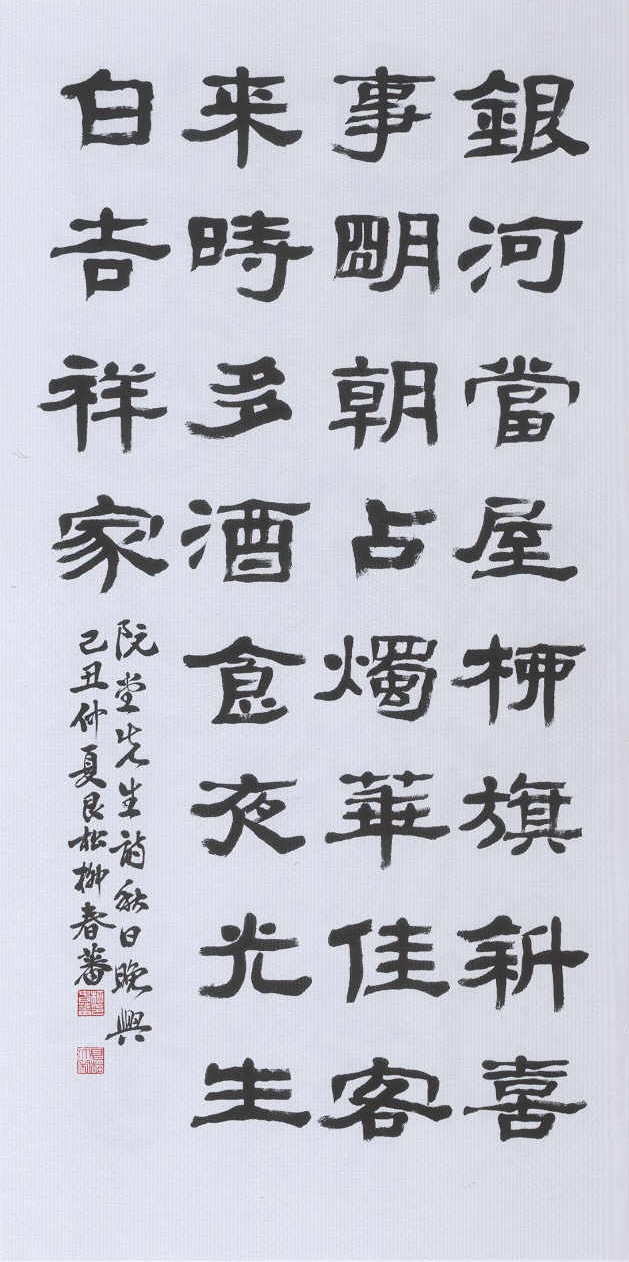 銀河當屋桺旗斜喜
事朙朝占燭華佳客
来時多酒食夜光生
白吉祥家
阮堂先生詩秋日晚興
己丑仲夏艮松柳春蕃